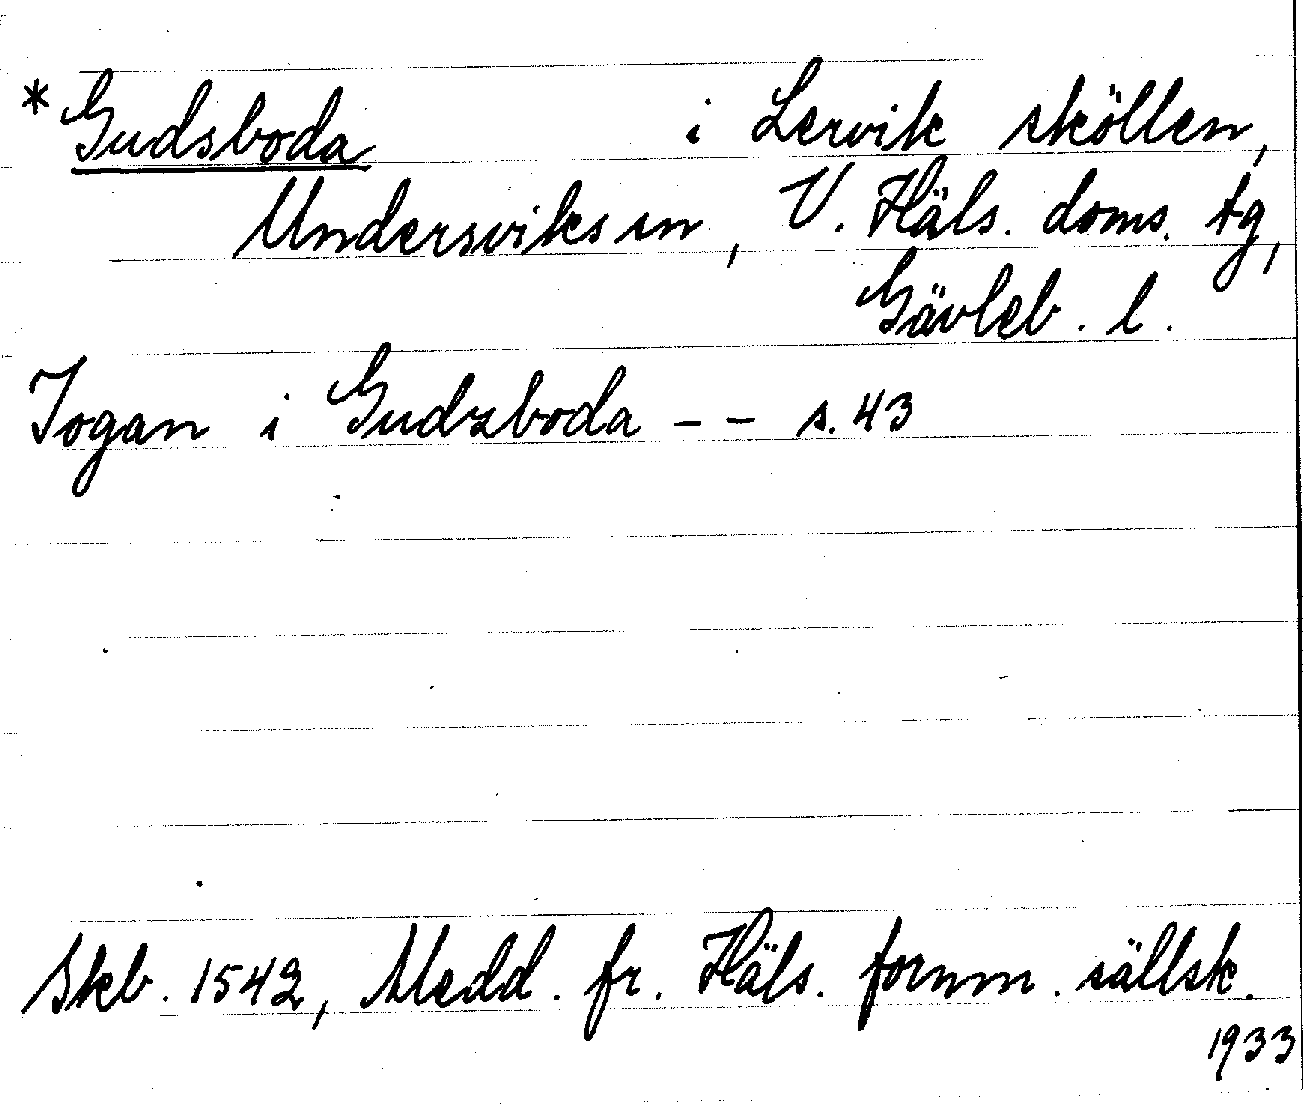 *Gudsboda i Lervik sköllen,
Undersviks sn, V. Häls. doms. tg,
Gävleb. l.
Jogan i Gudzboda - - s. 43
Skb. 1542, Medd. fr. Häls. fornm. sällsk.
1933